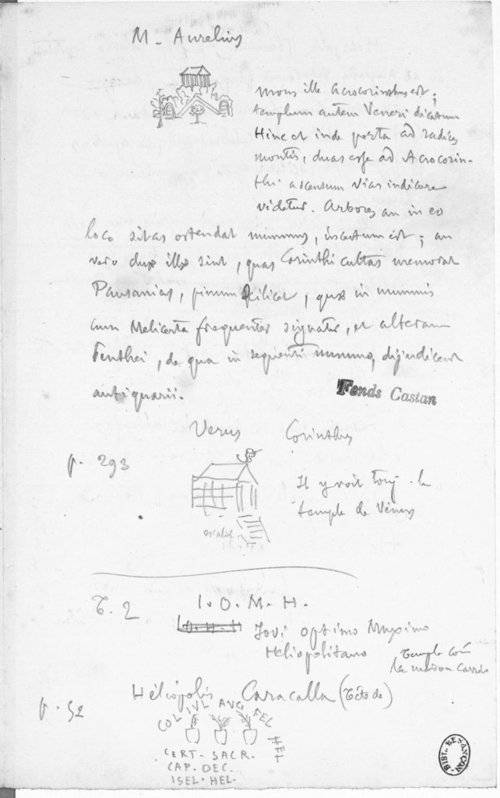 M. Aurelius
mons ille Acrocorinthus est;
templum autem Veneri dicatum
Hinc et inde porta ad radices
montis, duas esse ad Acrocorin-
thi ascensum vias indicare
videtur. Arbores an in eo
loco sitas ostendat nummus, incertum est; an
vero duæ illæ sint, quas Corinthi cultas memorat
Pausanias, pinum scilicet, quæ in nummis
cum Melicerta frequenter signatur, et alteram
Penthei, de qua in sequenti nummo, dijudicent
antiquarii.
Fonds Castan
Verus Corinthus
p. 293
Il y voit touj. le
temple de Vénus
escalier
T. 2
I. O. M. H.
I. O. M. H
Jovi Optimo Maximo
Heliopolitano
Temple
la maison Carrée
Héliopolis Caracalla (Tête de)
p. 52
COL IVL AVG FEL
HEL
CERT. SACR.
CAP. OEC.
ISEL. HEL.
BIBL. BESANÇON